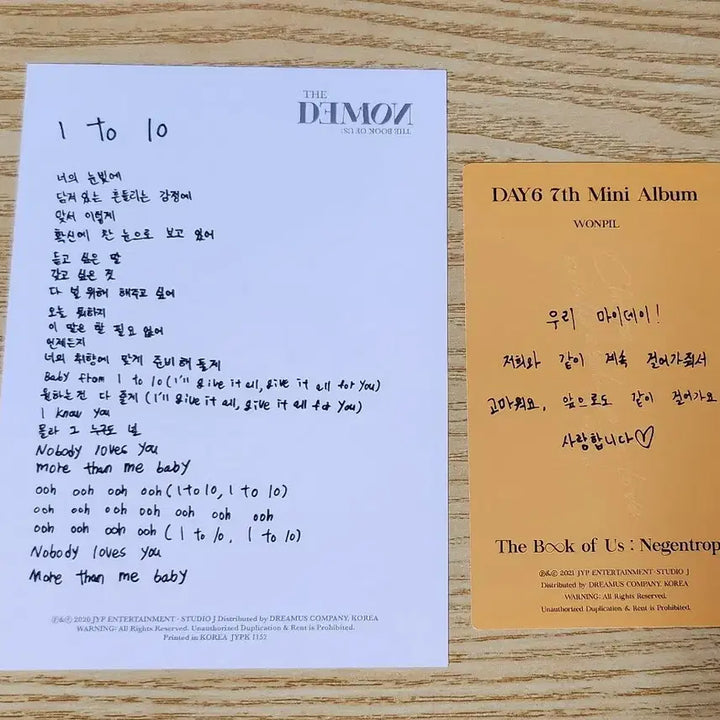 THE
DEMON
THE BOOK OF US:
1 to 10
너의 눈빛에
담겨 있는 흔들리는 감정에
맞서 이렇게
확신에 찬 눈으로 보고 있어
듣고 싶은 말
갖고 싶은 것
다 널 위해 해주고 싶어
오늘 뭐하지
이 말은 할 필요 없어
언제든지
너의 취향에 맞게 준비해 둘게
Baby from 1 to 10 (I'll give it all, give it all for you)
원하는 건 다 줄게 (I'll give it all, give it all for you)
I know you
몰라 그 누구도 널
Nobody loves you
more than me baby
ooh ooh ooh ooh (1 to 10, 1 to 10)
ooh ooh ooh ooh ooh ooh ooh
ooh ooh ooh ooh (1 to 10, 1 to 10)
Nobody loves you
More than me baby
℗&© 2020 JYP ENTERTAINMENT · STUDIO J Distributed by DREAMUS COMPANY, KOREA
WARNING: All Rights Reserved. Unauthorized Duplication & Rent is Prohibited.
Printed in KOREA JYPK 1152
DAY6 7th Mini Album
WONPIL
우리 마이데이!
저희와 같이 계속 걸어가줘서
고마워요, 앞으로도 같이 걸어가요
사랑합니다♡
The Book of Us : Negentrop
℗&© 2021 JYP ENTERTAINMENT · STUDIO J
Distributed by DREAMUS COMPANY, KOREA
WARNING: All Rights Reserved.
Unauthorized Duplication & Rent is Prohibited.